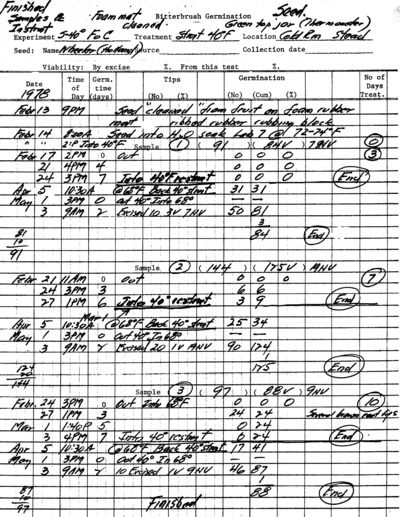 Finished
Samples & Foam mat Bitterbrush Germination Seed.
Instrat cleaned Green top jar (Thermometer)
Experiment 5-40° FoC Treatment Strat 40°F Location Cold Rm Stead
Seed: Name Wheeler Source Collection date
Viability: By excise %. From this test %.
Date Time of Day Germ. time (days) Tips Germination No of Days Treat.
1978 (No) (%) (No) (Cum) (%)
Febr 13 9PM Seed "cleaned" from fruit on foam rubber
mat rubbed rubber rubbing block
Febr 14 8:00A Seed into H2O soak Lab 7 @ 72-74°F
" " 21P Into 40°F Sample (1) ( 91 ) ( 8NV ) 7 8NV 0
Febr 17 2PM 0 Out 0 0 0 3
21 4PM 4 0 0 0
24 3PM 7 Into 40°F restrat 0 0 0 End
Apr 5 10:30A @68°F Back 40° strat 31 31
May 1 3PM 0 Out 40° Into 68°
3 9AM 2 Excised 10 3V 7NV 50 81
3
81 84 End
10
91
Sample (2) ( 144 ) ( 175V ) 19NV
Febr 21 11AM 0 Out 0 0 0 7
24 3PM 3 6 6
27 1PM 6 Into 40° restrat 3 9 End
Mar 1
Apr 5 10:30A @68°F Back 40° strat 25 34
May 1 3PM 0 Out 40° In 68° — —
3 9AM 2 Excised 20 1V 19NV 90 124
1
124 175 End
20
144
Sample (3) ( 97 ) ( 88V ) 9NV
Febr. 24 3PM 0 Out Into 68°F 0 0 0 10
27 1PM 3 24 24 Several brown root tips
Mar 1 1:40P 5 0 24
3 4PM 7 Into 40° restrat 0 24 End
Apr 5 10:30A @68°F Back 40° strat 17 41
May 1 3PM 0 Out 40° In 68° — —
3 9AM 2 10 Excised 1V 9NV 46 87
1
87 88 End
10
97 Finished